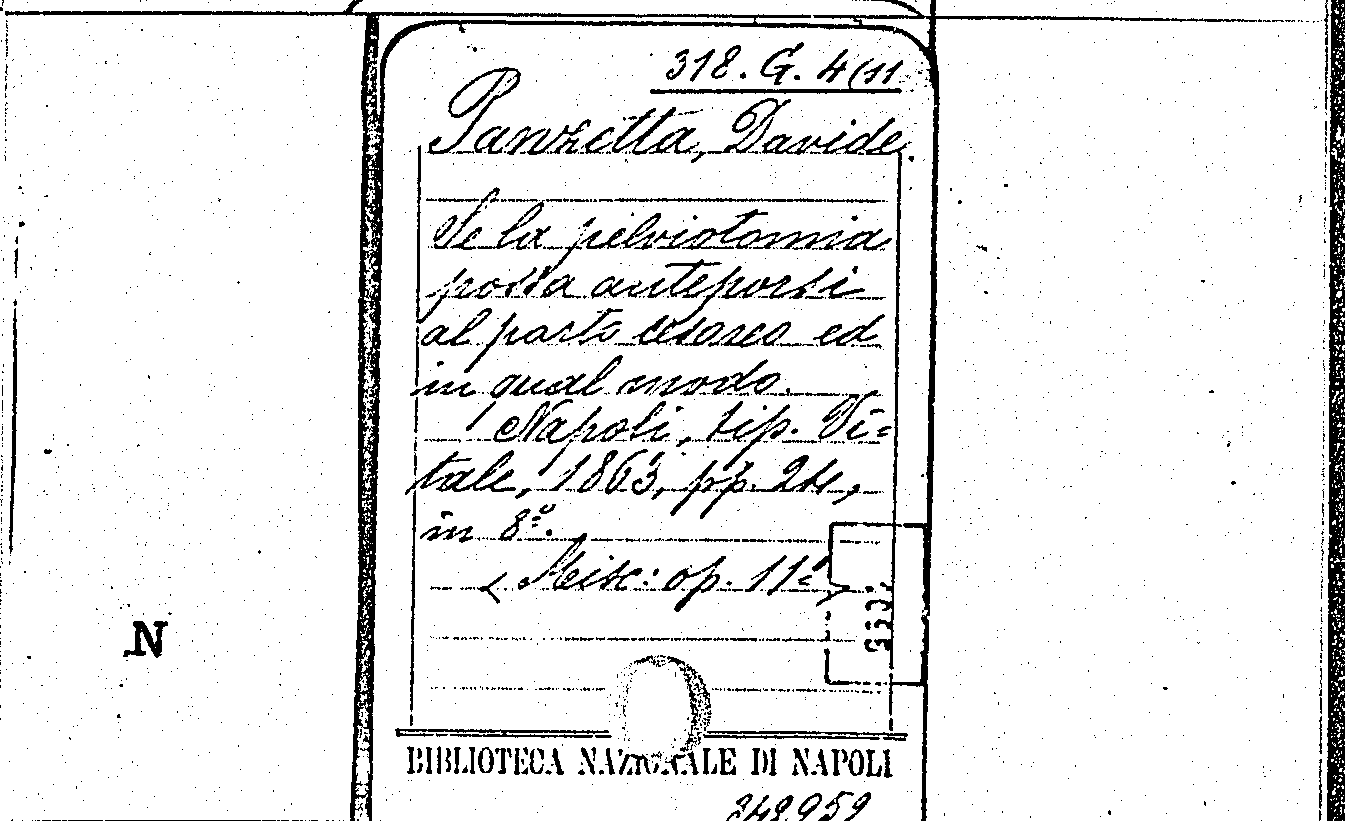 318. G. 4(11
Panzetta, Davide.
Se la pelviotomia
possa anteporsi
al parto cesareo ed
in qual modo.
Napoli, tip. Vi=
tale, 1863, pp. 24,
in 8º.
(Misc: op. 11ª)
N
BIBLIOTECA NAZIONALE DI NAPOLI
348959